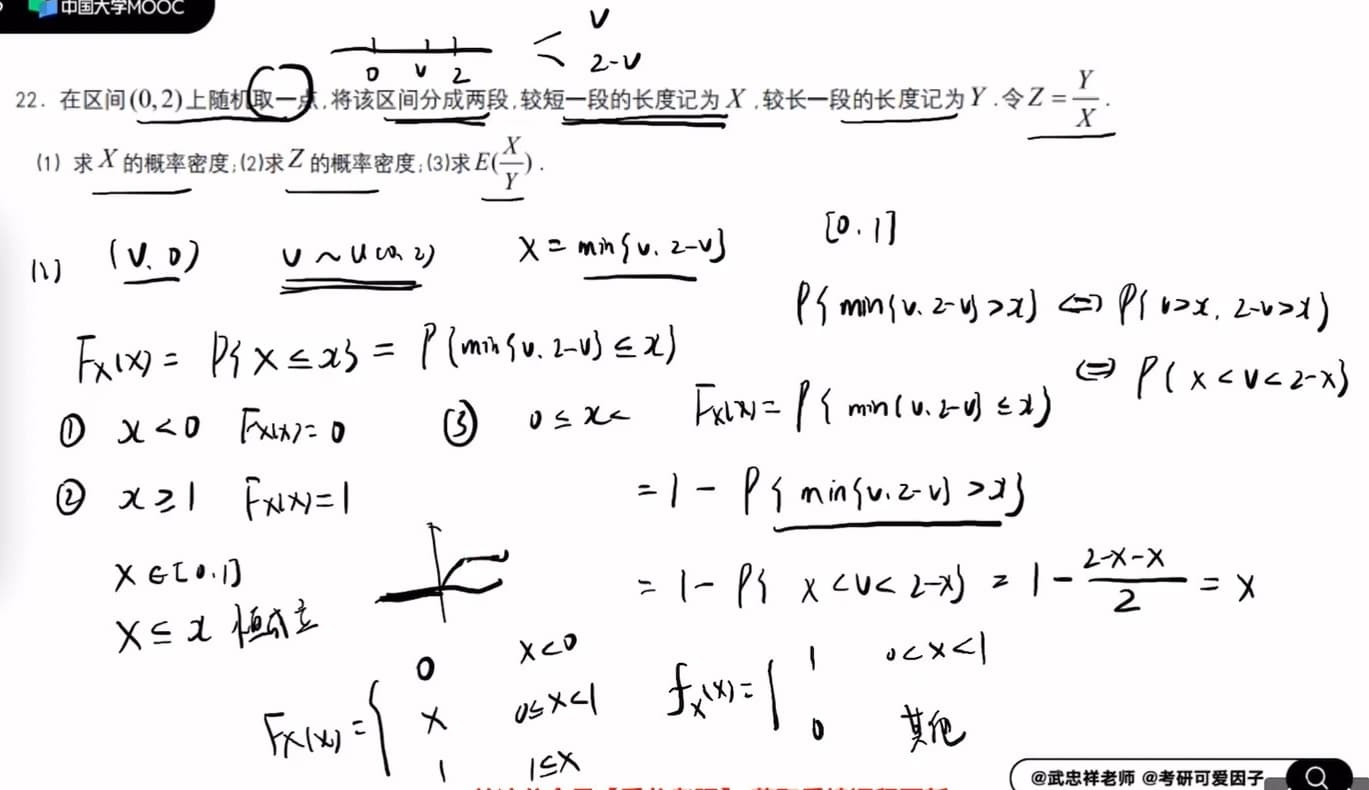 中国大学MOOC
V
0 V 2 <
2-V
22. 在区间(0,2)上随机取一点,将该区间分成两段,较短一段的长度记为 X,较长一段的长度记为 Y.令 Z = Y/X.
(1) 求 X 的概率密度;(2)求 Z 的概率密度;(3)求 E(X/Y).
(1) (V, 0) V ~ U(0, 2) X = min{V, 2-V} [0, 1]
P{min{V, 2-V}>x} <=> P{V>x, 2-V>x}
<=> P{x<V<2-x}
F_X(x) = P{X≤x} = P{min{V, 2-V}≤x}
① x<0 F_X(x)=0 ③ 0≤x< F_X(x)=P{min{V, 2-V}≤x}
② x≥1 F_X(x)=1 = 1 - P{min{V, 2-V}>x}
X∈[0,1] = 1 - P{x<V<2-x} = 1 - (2-x-x)/2 = x
X≤x 恒成立
F_X(x)={ 0 x<0
x 0≤x<1
1 1≤x
f_X(x)={ 1 0<x<1
0 其他
@武忠祥老师 @考研可爱因子